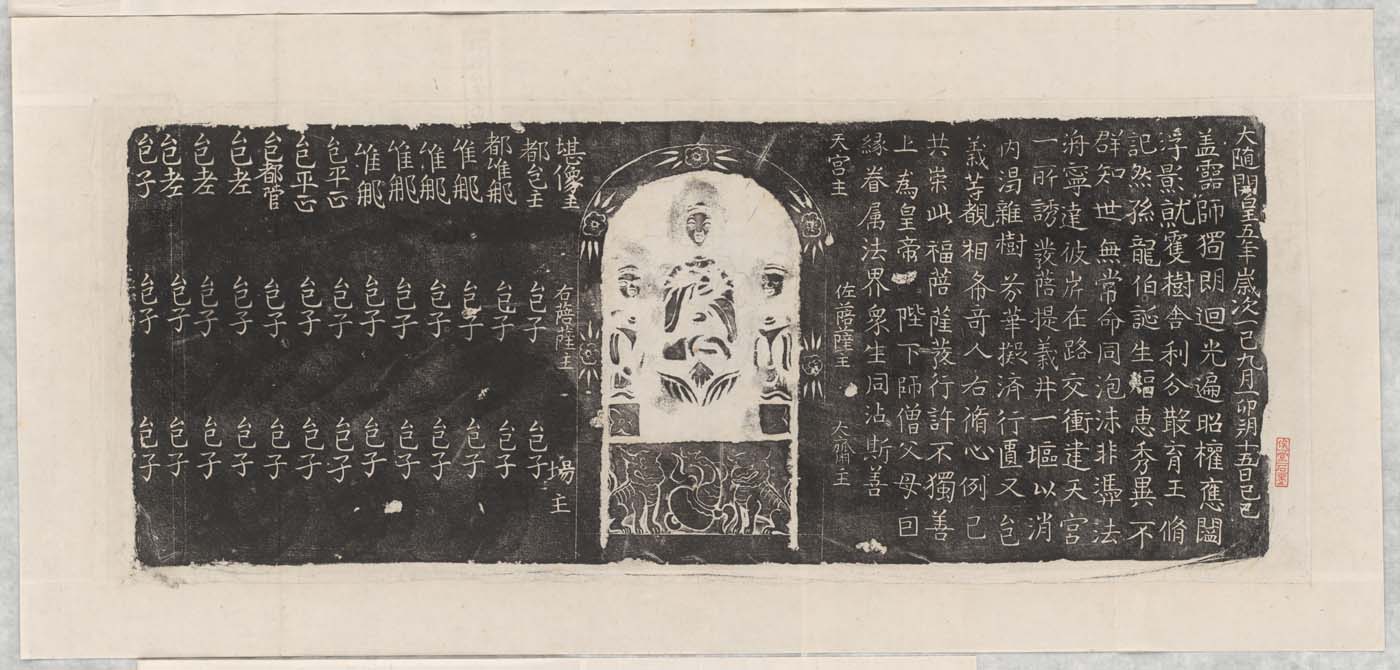 大隨開皇五年歲次乙巳九月丁卯朔十五日己巳
盖靈師獨朗迴光遍昭權應闔
浮景就雙樹舎利分散育王脩
記然孫龍伯誕生軀惠秀異不
群知世無常命同泡沫非憑法
海寧達彼岸在路交衝建天宮
一所誘發菩提義井一塸以消
内渴雜樹芬華擬濟行匱又邑
義等覩相希奇人右脩心例已
共崇此福菩薩發行許不獨善
上為皇帝陛下師僧父母曰
縁眷属法界衆生同沾斯善
天宮主 佐菩薩主 大齋主
堪像主 右菩薩主 場主
都邑主 邑子 邑子
都維那 邑子 邑子
維那 邑子 邑子
維那 邑子 邑子
維那 邑子 邑子
維那 邑子 邑子
邑平正 邑子 邑子
邑平正 邑子 邑子
邑都管 邑子 邑子
邑老 邑子 邑子
邑老 邑子 邑子
邑老 邑子 邑子
邑子 邑子 邑子